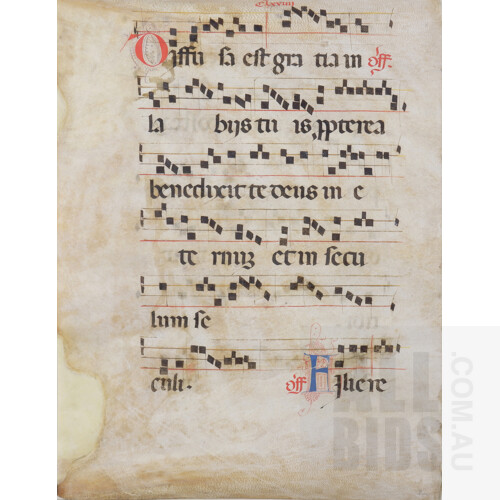 clxxviii
Diffu sa est gra tia in off.
la bijs tu is, ppterea
benedixit te deus in e
te rnuz et in secu
lum se
culi. off Filie re
ALL BIDS
.COM.AU